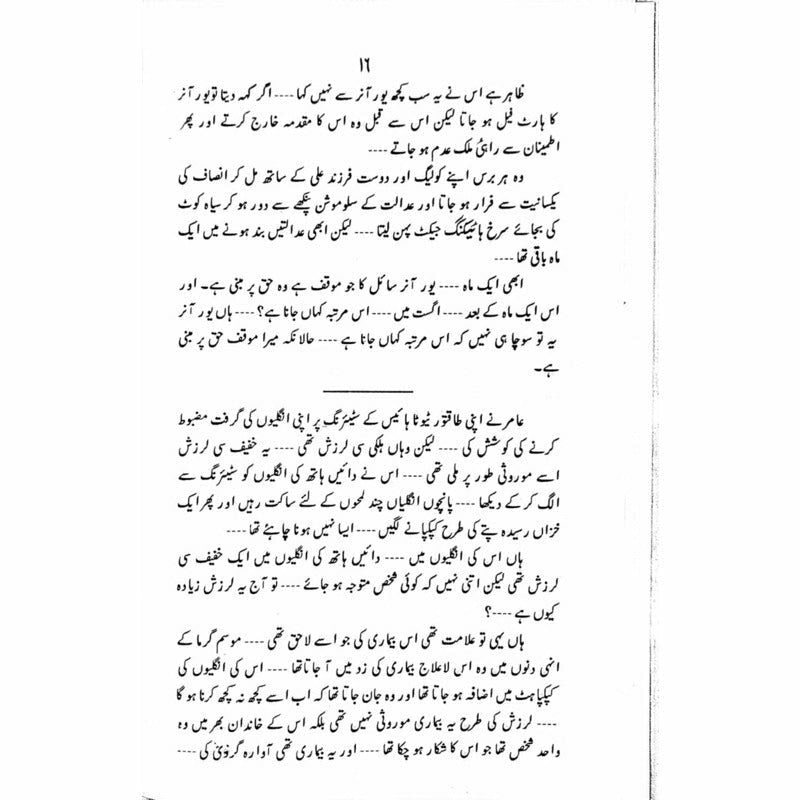 ۱۶
ظاہر ہے اس نے یہ سب کچھ یور آنر سے نہیں کہا ---- اگر کہہ دیتا تو یور آنر
کا ہارٹ فیل ہو جاتا لیکن اس سے قبل وہ اس کا مقدمہ خارج کرتے اور پھر
اطمینان سے راہئی ملک عدم ہو جاتے ----
وہ ہر برس اپنے کولیگ اور دوست فرزند علی کے ساتھ مل کر انصاف کی
یکسانیت سے فرار ہو جاتا اور عدالت کے سلوموشن پنکھے سے دور ہو کر سیاہ کوٹ
کی بجائے سرخ ہائیکنگ جیکٹ پہن لیتا ---- لیکن ابھی عدالتیں بند ہونے میں ایک
ماہ باقی تھا ----
ابھی ایک ماہ ---- یور آنر سائل کا جو موقف ہے وہ حق پر مبنی ہے۔ اور
اس ایک ماہ کے بعد ---- اگست میں ---- اس مرتبہ کہاں جانا ہے؟ ---- ہاں یور آنر
یہ تو سوچا ہی نہیں کہ اس مرتبہ کہاں جانا ہے ---- حالانکہ میرا موقف حق پر مبنی
ہے۔
عامر نے اپنی طاقتور ٹیوٹا ہائیس کے سٹیئرنگ پر اپنی انگلیوں کی گرفت مضبوط
کرنے کی کوشش کی ---- لیکن وہاں ہلکی سی لرزش تھی ---- یہ خفیف سی لرزش
اسے موروثی طور پر ملی تھی ---- اس نے دائیں ہاتھ کی انگلیوں کو سٹیئرنگ سے
الگ کر کے دیکھا ---- پانچوں انگلیاں چند لمحوں کے لئے ساکت رہیں اور پھر ایک
خزاں رسیدہ پتے کی طرح کپکپانے لگیں ---- ایسا نہیں ہونا چاہئے تھا ----
ہاں اس کی انگلیوں میں ---- دائیں ہاتھ کی انگلیوں میں ایک خفیف سی
لرزش تھی لیکن اتنی نہیں کہ کوئی شخص متوجہ ہو جائے ---- تو آج یہ لرزش زیادہ
کیوں ہے ----؟
ہاں یہی تو علامت تھی اس بیماری کی جو اسے لاحق تھی ---- موسم گرما کے
انہی دنوں میں وہ اس لاعلاج بیماری کی زد میں آ جاتا تھا ---- اس کی انگلیوں کی
کپکپاہٹ میں اضافہ ہو جاتا تھا اور وہ جان جاتا تھا کہ اب اسے کچھ نہ کچھ کرنا ہو گا
---- لرزش کی طرح یہ بیماری موروثی نہیں تھی بلکہ اس کے خاندان بھر میں وہ
واحد شخص تھا جو اس کا شکار ہو چکا تھا ---- اور یہ بیماری تھی آوارہ گردی کی ----